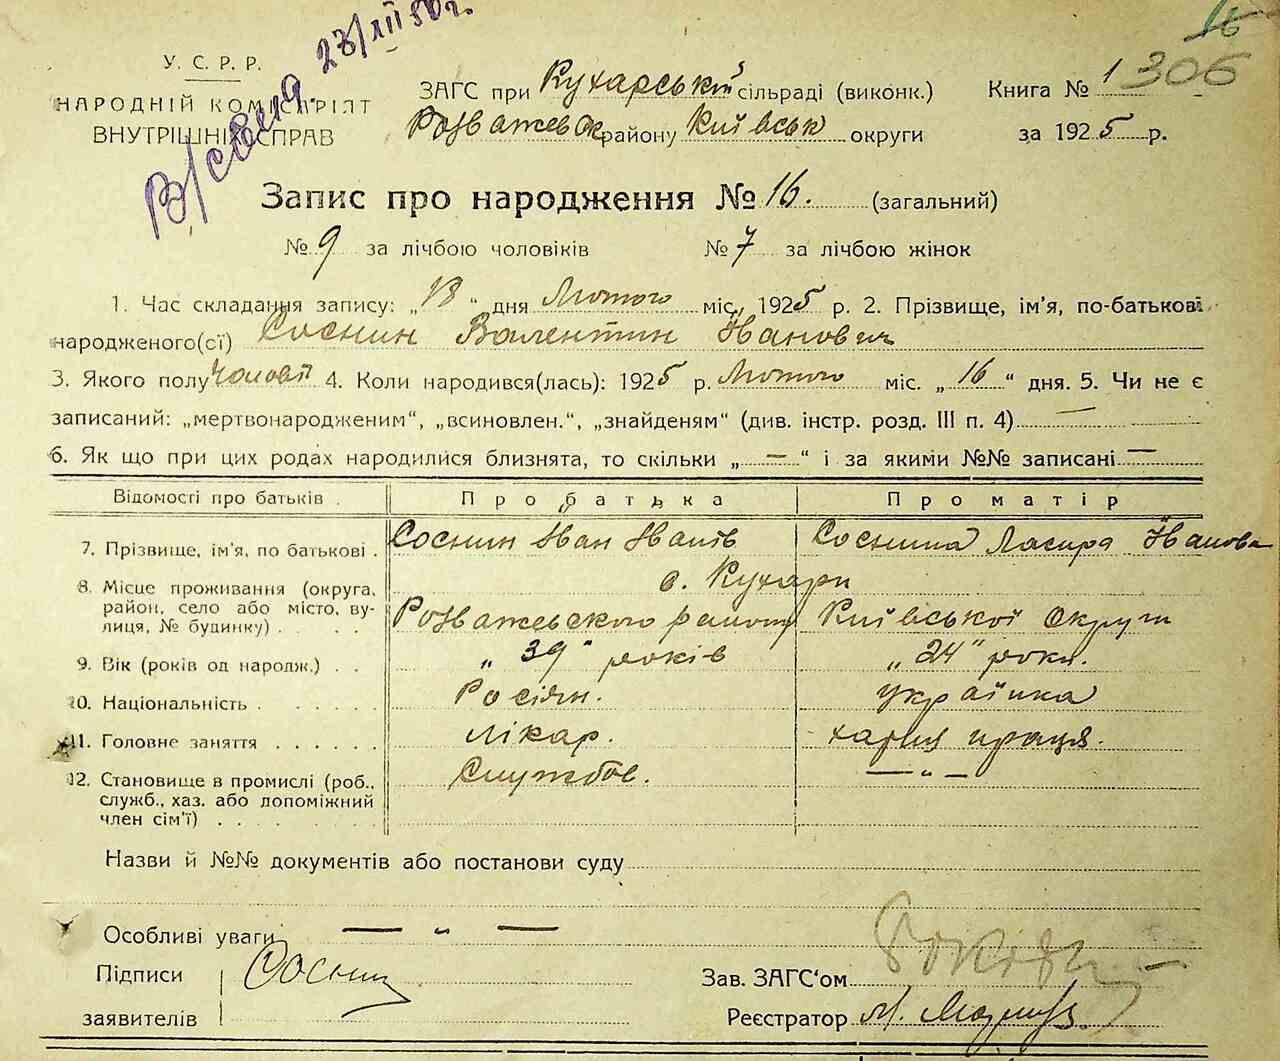 В/свед. 23/XII 50 г.
16
У. С. Р. Р.
НАРОДНІЙ КОМІСАРІЯТ
ВНУТРІШНІХ СПРАВ
ЗАГС при Кухарській сільраді (виконк.)
Розважевск району Київськ округи
Книга № 1 306
за 1925 р.
Запис про народження № 16. (загальний)
№ 9 за лічбою чоловіків № 7 за лічбою жінок
1. Час складання запису: „18" дня Лютого міс. 1925 р. 2. Прізвище, ім'я, по-батькові
народженого(сї) Соснин Валентин Іванович
3. Якого полу Чоловіч 4. Коли народився(лась): 1925 р. Лютого міс. „16" дня. 5. Чи не є
записаний: „мертвонародженим", „всиновлен.", „знайденям" (див. інстр. розд. III п. 4) —
6. Як що при цих родах народилися близнята, то скільки „ — " і за якими №№ записані —
Відомості про батьків Про батька Про матір
7. Прізвище, ім'я, по батькові . Соснин Іван Іванів Соснина Іванова
8. Місце проживання (округа, с. Кухари
район, село або місто, ву- Розважевского району Київської Округи
лиця, № будинку) . . . . .
9. Вік (років од народж.) . . „39" років „24" роки.
10. Національність . . . . . . Росіян. Українка
11. Головне заняття . . . . . . лікар. хатня праця.
12. Становище в промислі (роб., Службов. — „ —
служб., хаз. або допоміжний
член сім'ї) . . . . . . . .
Назви й №№ документів або постанови суду
Особливі уваги — „ —
Підписи Соснин
заявителів
Зав. ЗАГС'ом
Реєстратор